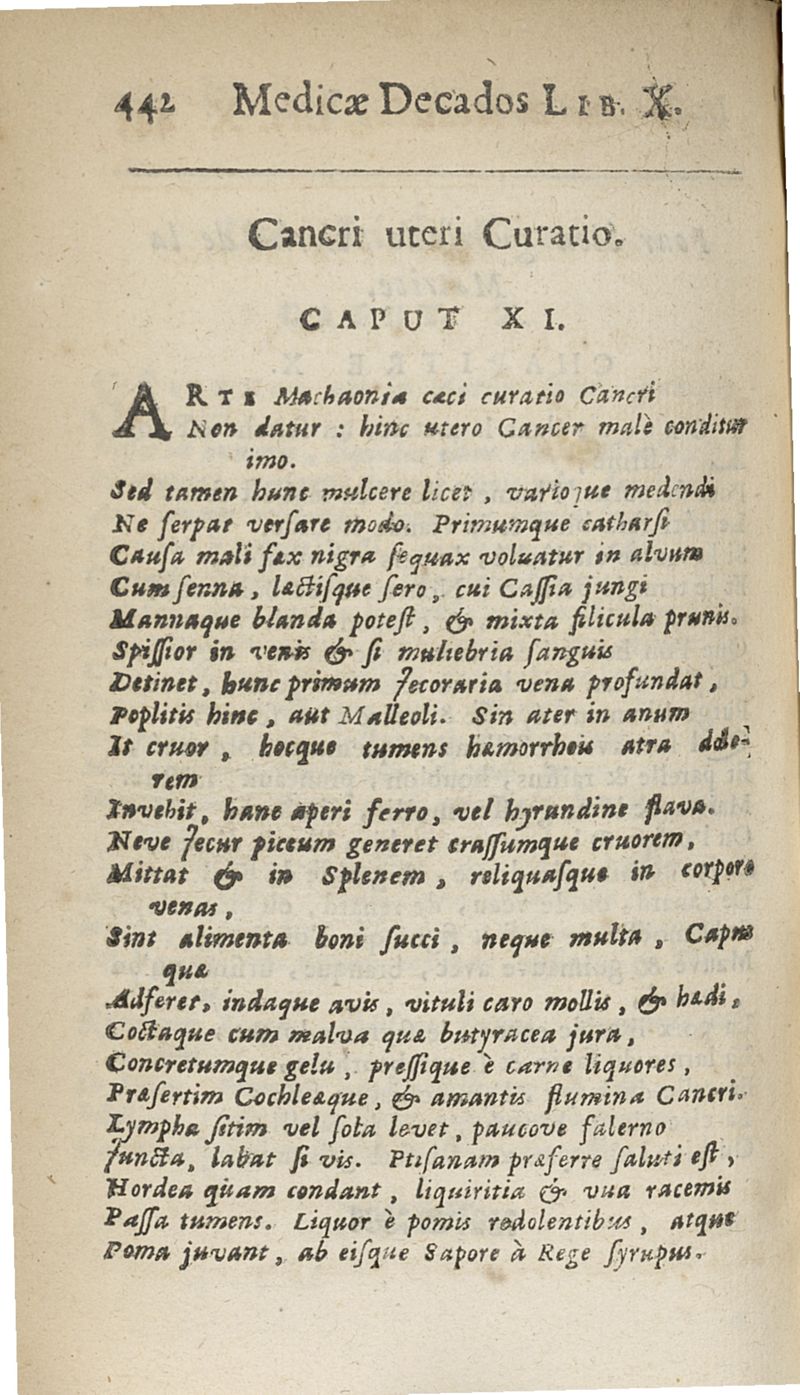 442 Medicæ Decados LIB. X.
Cancri uteri Curatio.
CAPUT XI.
ARTE Machaonia cæci curatio Cancri
Non datur : hinc utero Cancer malè conditur
imo.
Sed tamen hunc mulcere licet , varioque medendi
Ne ſerpat verſare modo. Primumque catharſi
Cauſa mali fæx nigra ſequax voluatur in alvum
Cum ſenna , lactiſque ſero , cui Caſſia jungi
Mannaque blanda poteſt , & mixta filicula prunis.
Spiſſior in venis & ſi muliebria ſanguis
Detinet , hunc primum Jecoraria vena profundat ,
Poplitis hinc , aut Malleoli. Sin ater in anum
It cruor , hocque tumens hæmorrhois atra
rem
Invehit , hanc aperi ferro , vel hyrundine flava.
Neve Jecur piceum generet craſſumque cruorem ,
Mittat & in Splenem , reliquaſque in corpore
venas ,
Sint alimenta boni ſucci , neque multa , Capus
quæ
Adferet , indaque avis , vituli caro mollis , & hædi ,
Coctaque cum malva quæ butyracea jura ,
Concretumque gelu , preſſique è carne liquores ,
Præſertim Cochleæque , & amantis flumina Cancri.
Lympha ſitim vel ſola levet , paucove falerno
Juncta , labat ſi vis. Ptiſanam præferre ſaluti eſt ,
Hordea quam condant , liquiritia & vua racemis
Paſſa tumens. Liquor è pomis redolentibus , atque
Poma juvant , ab eiſque Sapore à Rege ſyrupus.